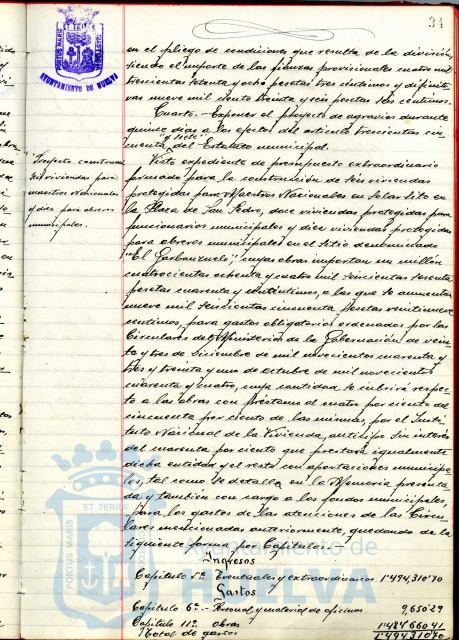 34
PORTUS MARIS ET TERRE CUSTODIA
AYUNTAMIENTO DE HUELVA
en el pliego de condiciones que resulta de la división,
siendo el importe de las fianzas provisionales cuatro mil
trescientas setenta y ocho pesetas tres céntimos y definiti-
vas nueve mil ciento treinta y seis pesetas seis céntimos.
Cuarto.- Exponer el proyecto de agravios durante
quince días a los efectos del artículo trescientos cin-
cuenta y siete del Estatuto municipal.
Proyecto construcción
seis viviendas para
maestros Nacionales
y diez para obreros
municipales.
Visto expediente de presupuesto extraordinario
formado para la construcción de seis viviendas
protegidas para Maestros Nacionales en solar sito en
la Plaza de San Pedro, doce viviendas protegidas para
funcionarios municipales y diez viviendas protegidas
para obreros municipales en el sitio denominado
"El Garbanzuelo", cuyas obras importan un millón
cuatrocientas ochenta y cuatro mil seiscientas sesenta
pesetas cuarenta y un céntimos, a las que se aumentan
nueve mil seiscientas cincuenta pesetas veintinueve
céntimos, para gastos obligatorios ordenados por las
Circulares del Ministerio de la Gobernación de vein-
te y tres de Diciembre de mil novecientos cuarenta y
tres y treinta y uno de octubre de mil novecientos
cuarenta y cuatro, cuya cantidad se cubrirá respec-
to a las obras con préstamo al cuatro por ciento del
cincuenta por ciento de las mismas, por el Insti-
tuto Nacional de la Vivienda, anticipo sin interés
del cuarenta por ciento que prestará igualmente
dicha entidad y el resto con aportaciones municipa-
les, tal como se detalla en la Memoria presenta-
da y también con cargo a los fondos municipales,
para los gastos de las atenciones de las Circu-
lares mencionadas anteriormente, quedando de la
siguiente forma por Capítulos.
Ingresos
Capítulo 5º Eventuales y extraordinarios 1.494,310'70
Gastos
Capítulo 6º.- Personal y material de oficinas 9,650'29
Capítulo 11º obras 1.484,660'41
Total de gastos 1.494,310'70
PORTUS MARIS ET TERRE CUSTODIA
Ayuntamiento de
HUELVA